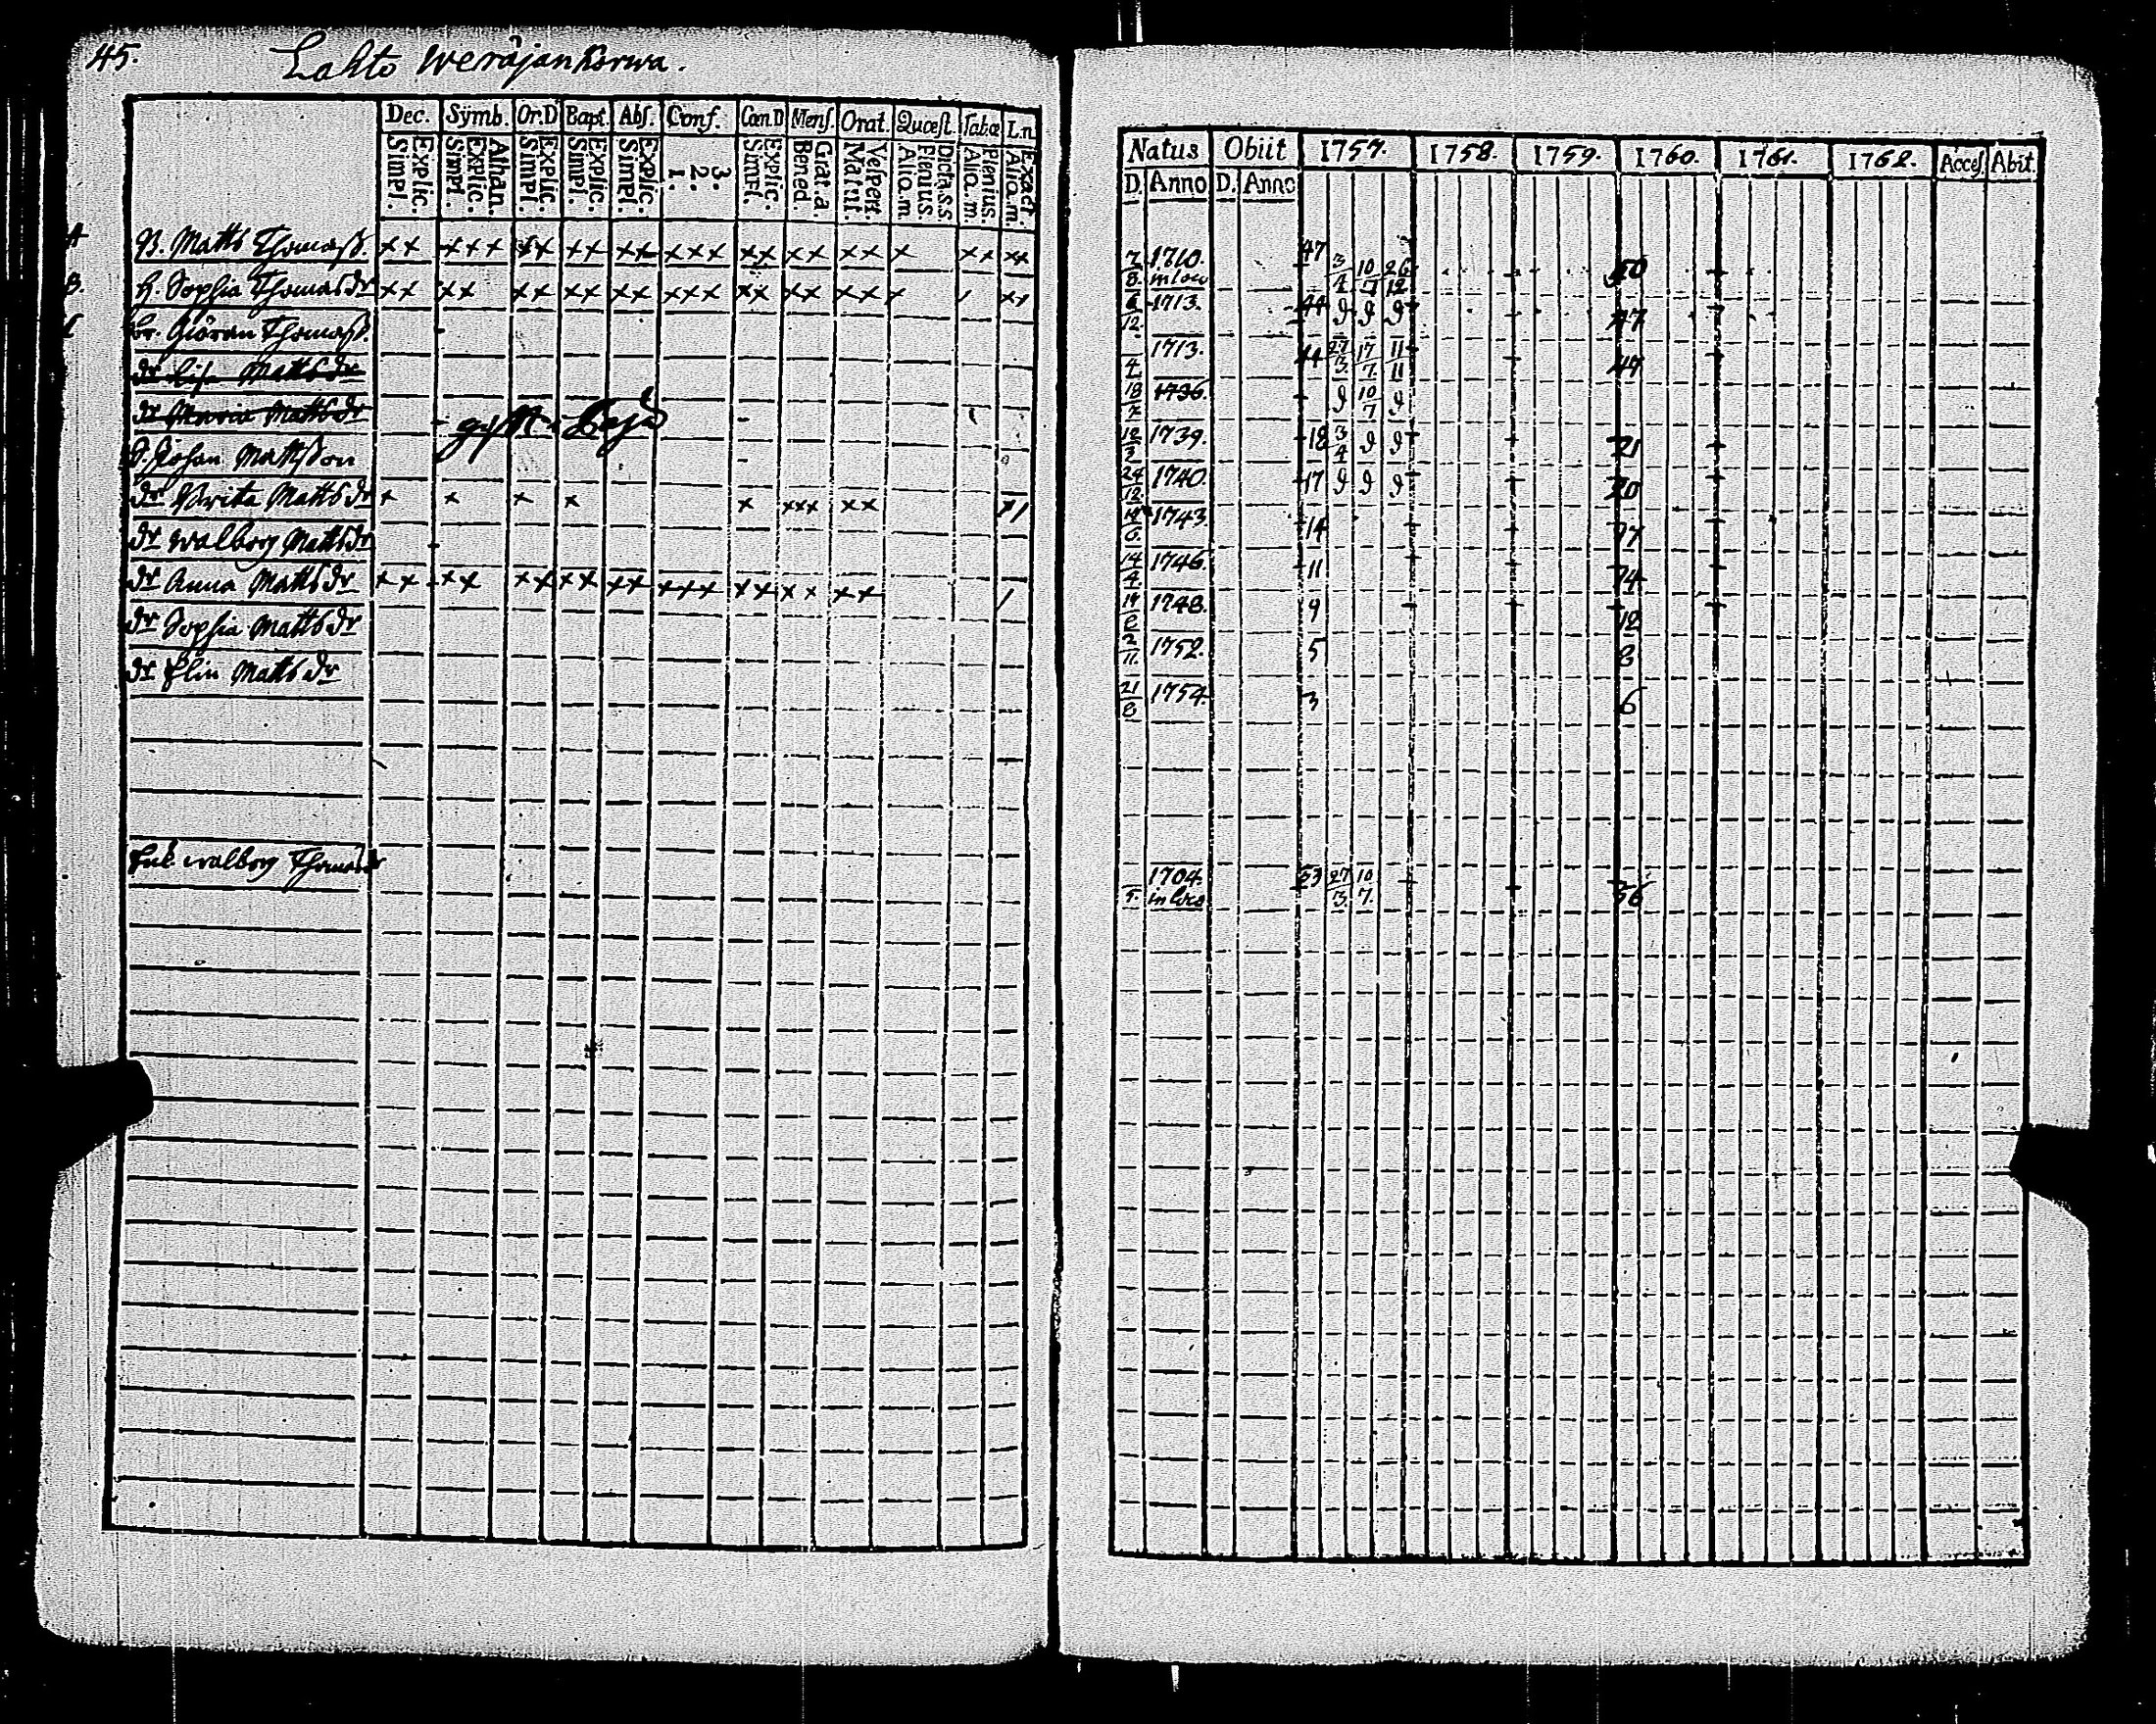 45. Lahto Weräjankorwa.
Dec. Sÿmb. Or.D Bapt. Abſ. Conf. Cœn.D Menſ. Orat. Quæſt. Tabæ L.n
Explic. Simpl. Athan. Explic. Simpl. Explic. Simpl. Explic. Simpl. Explic. Simpl. 3. 2. 1. Explic. Simpl. Grat. a. Bened. Veſpert. Matut. Dicta. s.s Plenius Alia. m. Plenius. Alia. m. Exact. Alia. m.
A B. Matts Thomaß.
B. H. Sophia Thomasdr
Br. Giöran Thomaß.
dr Matts dr
dr Maria Mattsdr
S. Johan Mattsson
dr Brita Mattsdr
dr Walborg Mattsdr
dr Anna Mattsdr
dr Sophia Mattsdr
dr Elin Mattsdr
Walborg Thomasdr
Natus Obiit 1757. 1758. 1759. 1760. 1761. 1762. Acceſ. Abit.
D. Anno D. Anno
7/8. 1710. in loco 47 3/4 10/7 26/12 50
6/12. 1713. 44 9 9 9 47
4 1713. 44 27/3 17/7 11/11 47
18/7 1736. 9 10/7 9
12/3 1739. 18 3/4 9 9 21
24/12 1740. 17 9 9 9 20
19/6. 1743. 14 17
14/4. 1746. 11 14
19/2 1748. 9 12
2/11. 1752. 5 8
21/8 1754. 3 6
1704. in loco 53 27/3 10/7. 56